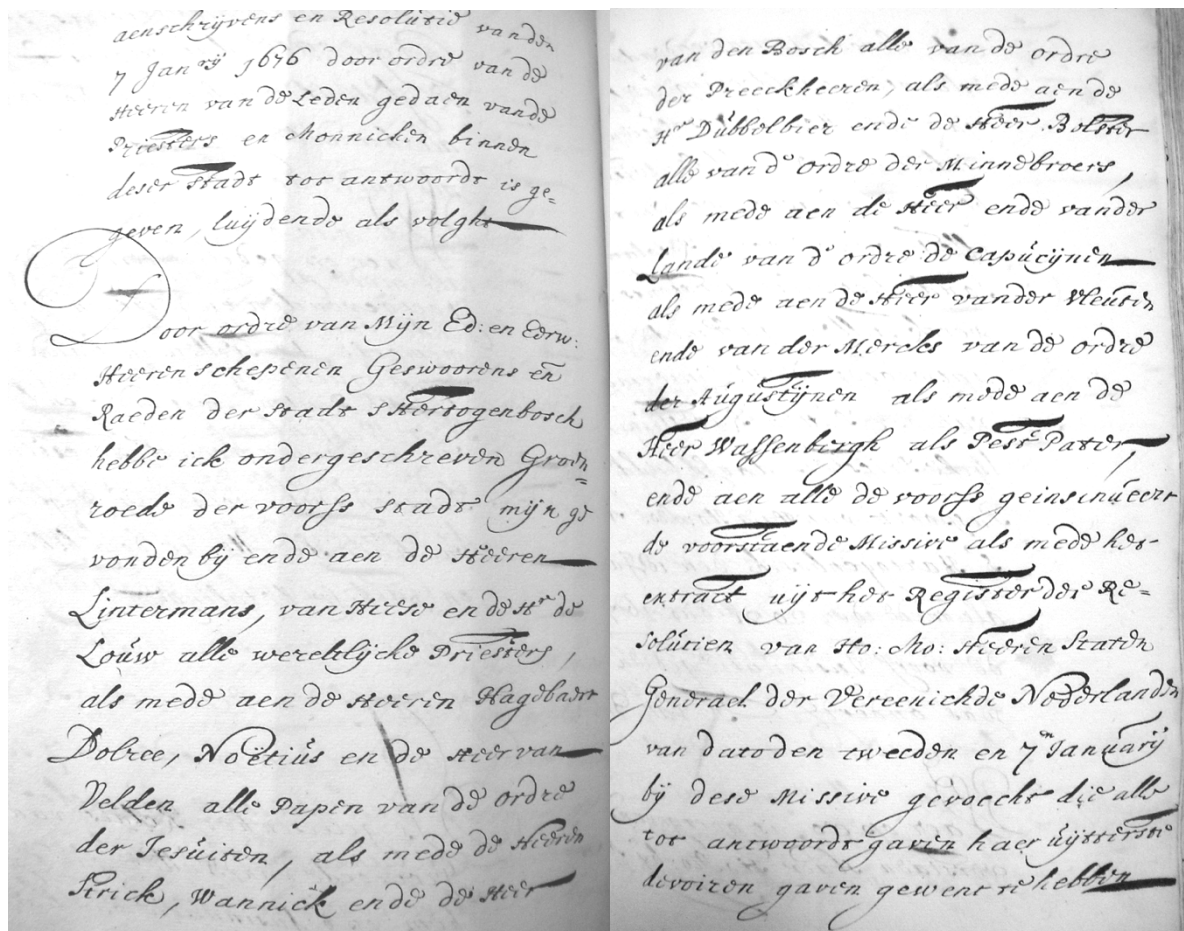 aenschrijvens en Resolutie vanden
7 Janrij 1676 door ordre van de
Heeren van de Leden gedaen vande
Priesters en Monnicken binnen
deser stadt tot antwoordt is ge=
geven, luijdende als volght
Door ordre van Mijn Ed: en Eerw:
Heeren schepenen Geswoorens en
Raeden der stadt sHertogenbosch
hebbe ick ondergeschreven Groen=
roede der voorss stadt mijn ge
vonden bij ende aen de Heeren
Lintermans, van Hiese en de Hr de
Louw alle wereltlijcke Priesters,
als mede aen de Heeren Hagebaert
Dolree, Noëtius en de Heer van
Velden alle Papen van de ordre
der Jesuiten, als mede de Heeren
Strick, Wannick ende de Heer
van den Bosch alle van de ordre
der Preeckheeren, als mede aen de
Hr Dubbelbier ende de Heer Bolster
alle van de ordre der Minnebroers,
als mede aen de Heer ende vander
Lande van d' ordre de Capucijnen
als mede aen de Heer vander Vleuten
ende van der Mercks van de ordre
der Augustijnen als mede aen de
Heer Wassenbergh als Pest Pater,
ende aen alle de voorss geinsinueert
de voorstaende Missive als mede het
extract uijt het Register der Re=
solutien van Ho: Mo: Heeren Staten
Generael der Vereenichde Nederlanden
van dato den tweeden en 7en Januarij
bij dese Missive gevoecht die alle
tot antwoordt gaven haer uijtterste
devoiren gaven gewent te hebben